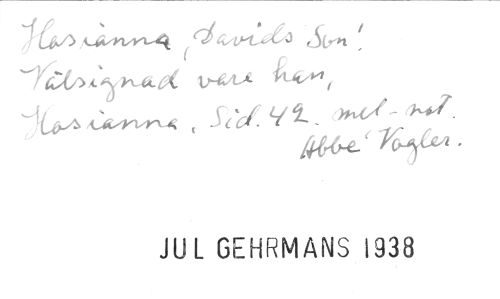 Hosianna, Davids Son!
Välsignad vare han,
Hosianna. Sid. 42. mel-not.
Abbé Vogler.
JUL GEHRMANS 1938